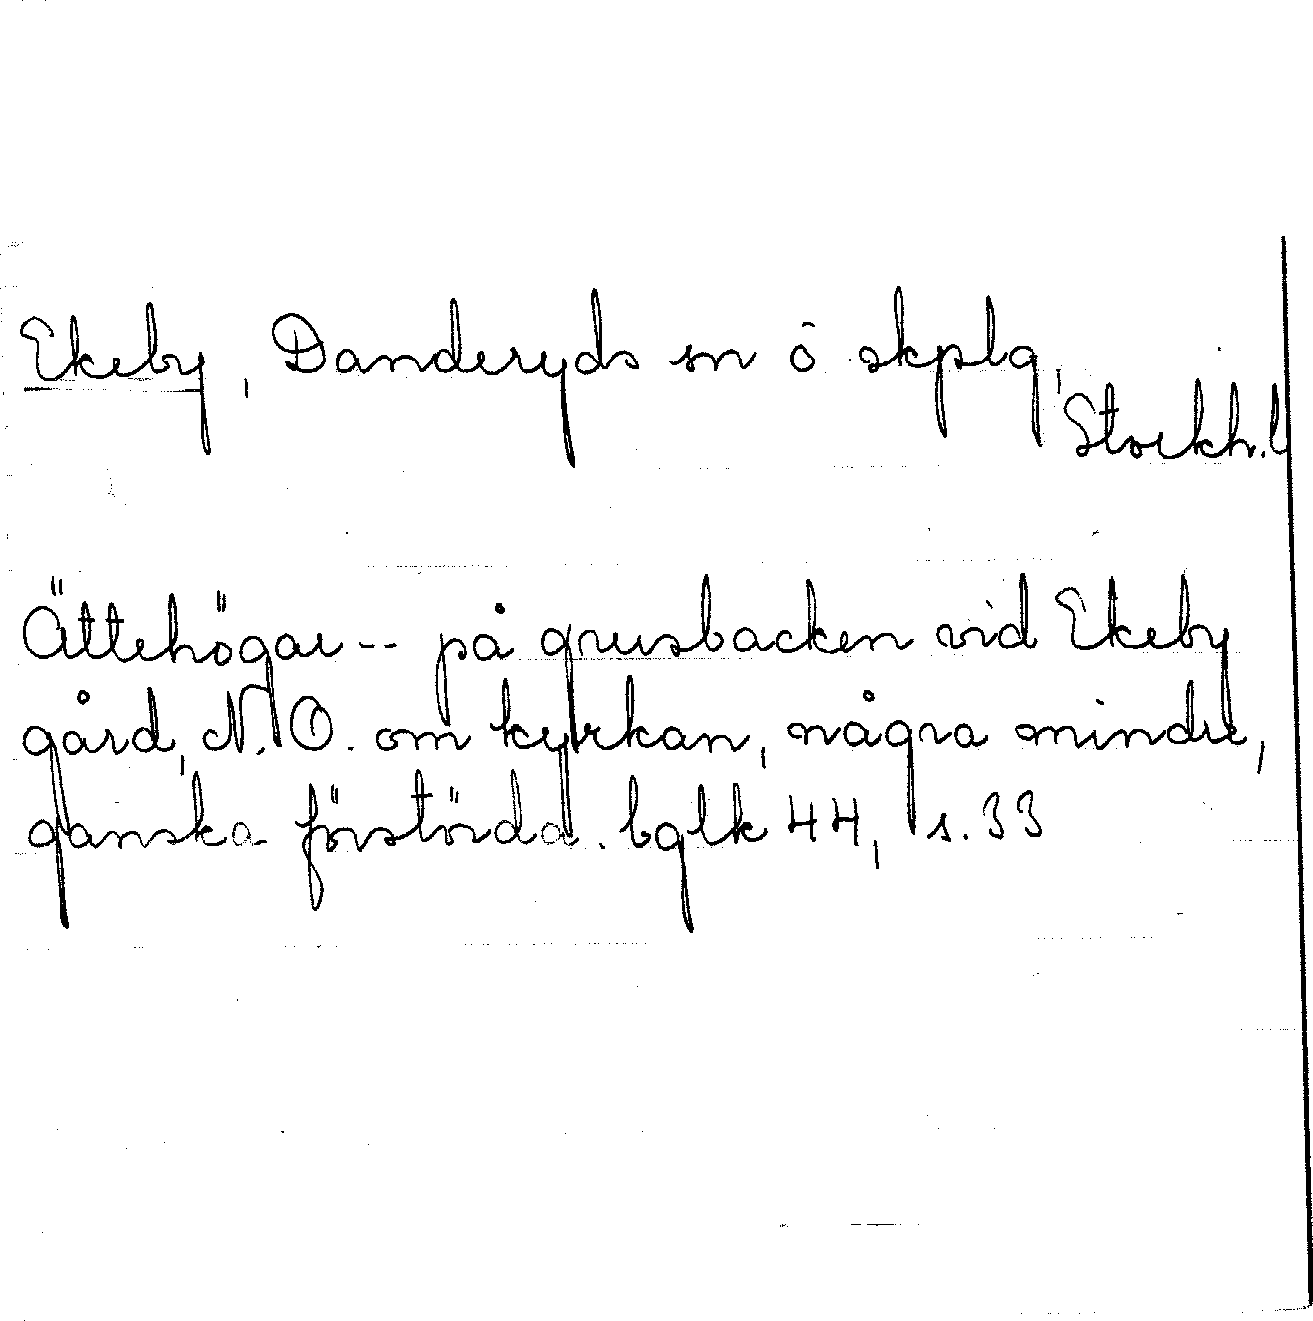 Ekeby, Danderyds sn ö skplg,
Stockh. l
Ättehögar -- på grusbacken vid Ekeby
gård, N.O. om kyrkan, några mindre,
ganska förstörda. bglk 44, s. 33